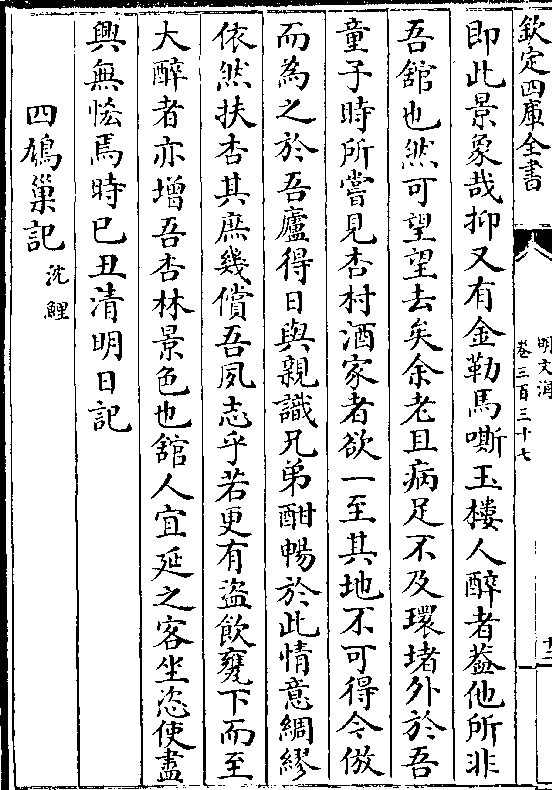 欽定四庫全書
明文海
卷三百三十七
十三
即此景象哉抑又有金勒馬嘶玉樓人醉者葢他所非
吾舘也然可望望去矣余老且病足不及環堵外於吾
童子時所嘗見杏村酒家者欲一至其地不可得今倣
而為之於吾廬得日與親識兄弟酣暢於此情意綢繆
依然扶杏其庶幾償吾夙志乎若更有盜飲甕下而至
大醉者亦增吾杏林景色也舘人宜延之客坐恣使盡
興無恡焉時已丑清明日記
四鵷巢記 沈鯉